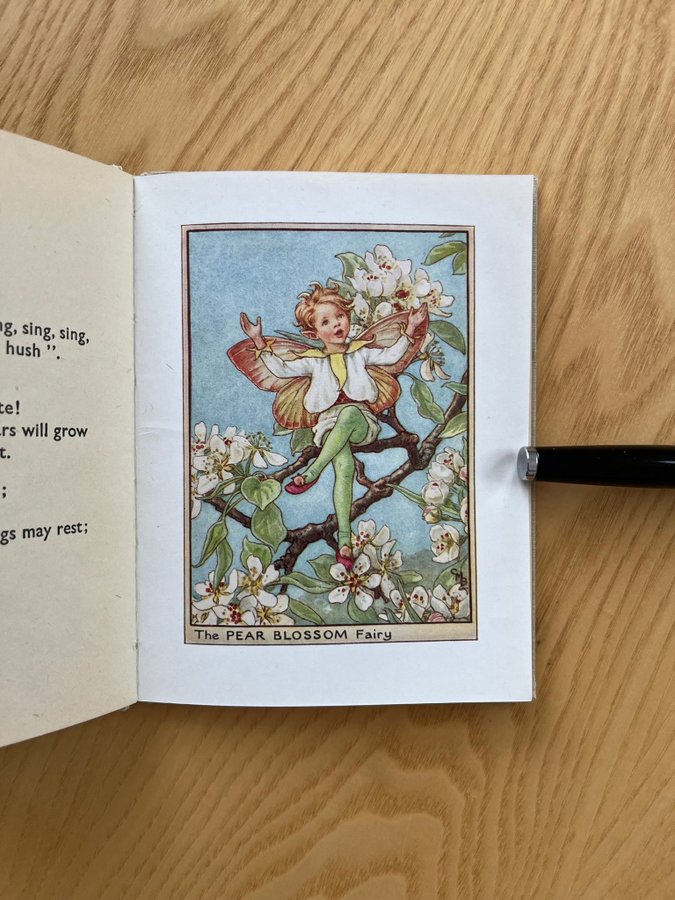 sing, sing,
hush ”.
will grow
may rest;
The PEAR BLOSSOM Fairy